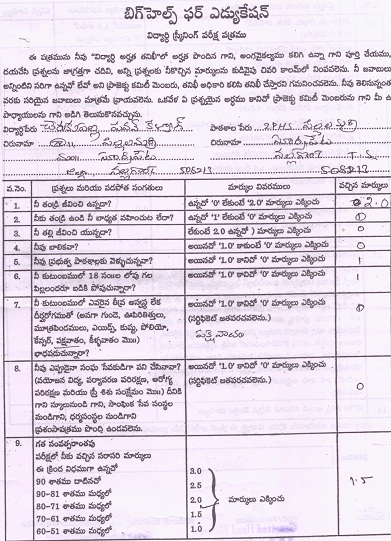 బిగ్‌హెల్ప్ ఫర్ ఎడ్యుకేషన్
విద్యార్థి స్క్రీనింగ్ పరీక్ష పత్రము
ఈ పత్రమును నీవు "విద్యార్థి అర్హత తనిఖీ"లో అర్హత పొందిన గాని, అంగవైకల్యము కలిగి ఉన్నా గాని పూర్తి చేయుము,
దయచేసి ప్రశ్నలను జాగ్రత్తగా చదివి, అన్ని ప్రశ్నలకు నీకొచ్చిన మార్కులను కుడివైపు చివరి కాలమ్‌లో నింపవలెను. నీ జవాబులు
అన్నింటిని సరిగా ఉన్నవో లేవో అని ప్రాజెక్టు కమిటీ మెంబరు, తనిఖీ అధికారి కలిసి తనిఖీ చేస్తారని గమనించవలెను. నీవు తెలిసినంత
వరకు సరియైన జవాబులు మాత్రమే వ్రాయవలెను. ఒకవేళ ఏ ప్రశ్నయైన అర్థము కానిచో ప్రాజెక్టు కమిటీ మెంబరును గాని మీ ఉ
పాధ్యాయులను గాని అడిగి తెలుసుకొనవచ్చును.
విద్యార్థిపేరు పవన్ కళ్యాణ్ పాఠశాల పేరు ZPHS
చిరునామా చిరునామా
సూర్యాపేట నల్లగొండ T.S.
నల్లగొండ 508213 508213
వ.నెం. ప్రశ్నలు మరియు సరిపోత సంగతులు మార్కుల వివరములు వచ్చిన మార్కులు
1. నీ తండ్రి జీవించి ఉన్నాడా? ఉన్నచో '0' లేకుంటే '2.0' మార్కులు ఎక్కించు 2.0
2. నీకు తండ్రి ఉండి నీ బాధ్యత వహించుట లేదా? ఉన్నచో '1' లేకుంటే '0' మార్కులు ఎక్కించు 0
3. నీ తల్లి జీవించి యున్నదా? లేకుంటే 2.0 ఉన్నచో ) మార్కులు ఎక్కించు 0
4. నీవు బాలికవా? అయినచో '1.0' కాకుంటే '0' మార్కులు ఎక్కించు 0
5. నీవు ప్రభుత్వ పాఠశాలకు వెళ్ళుచున్నావా? అయినచో '1.0' కానిచో '0' మార్కులు ఎక్కించు 1
6. నీ కుటుంబములో 18 సం॥ల లోపు గల
పిల్లలందరూ బడికి పోవుచున్నారా? అయినచో '1.0' కానిచో '0' మార్కులు ఎక్కించు 1
7. నీ కుటుంబములో ఎవరికైన తీవ్ర అనారోగ్య లేక
దీర్ఘరోగముతో (అనగా గుండె, ఊపిరితిత్తులు,
మూత్రపిండములు, ఎయిడ్స్, కుష్ఠు, పోలియో,
కేన్సర్, పక్షవాతం, కీళ్ళవాతం మొ॥)
బాధపడుచున్నారా? అయినచో '1.0' కానిచో '0' మార్కులు ఎక్కించు
(సర్టిఫికెట్ జతపరచవలెను.)
పక్షవాతం
8. నీవు ఎప్పుడైనా సంఘ సేవకుడిగా పని చేసినావా?
(వయోజన విద్య, పర్యావరణ పరిరక్షణ, ఆరోగ్య
పరిరక్షణ మరియు స్త్రీ శిశు సంక్షేమం మొ॥) దీనికి
గాని స్కూలునుండి గాని, సాంఘిక సేవ సంస్థల
నుండిగాని, ధర్మసంస్థల నుండిగాని
ప్రశంసాపత్రము పొంది ఉండవలెను. అయినచో '1.0' కానిచో '0' మార్కులు ఎక్కించు
(సర్టిఫికెట్ జతపరచవలెను.) 0
9. గత సంవత్సరాంతపు
పరీక్షలో నీకు వచ్చిన సరాసరి మార్కులు
ఈ క్రింద విధముగా ఉన్నచో
90 శాతము దాటినచో 3.0
90-81 శాతము మధ్యలో 2.5
80-71 శాతము మధ్యలో 2.0 మార్కులు ఎక్కించు
70-61 శాతము మధ్యలో 1.5
60-51 శాతము మధ్యలో 1.0
1.5